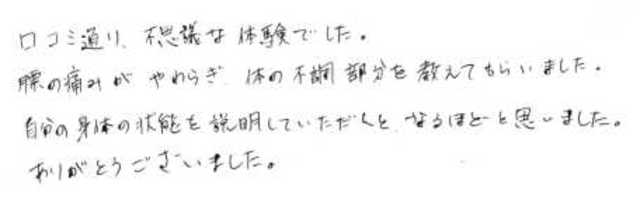 口コミ通り、不思議な体験でした。
腰の痛みがやわらぎ、体の不調部分を教えてもらいました。
自分の身体の状態を説明していただくと、なるほどと思いました。
ありがとうございました。